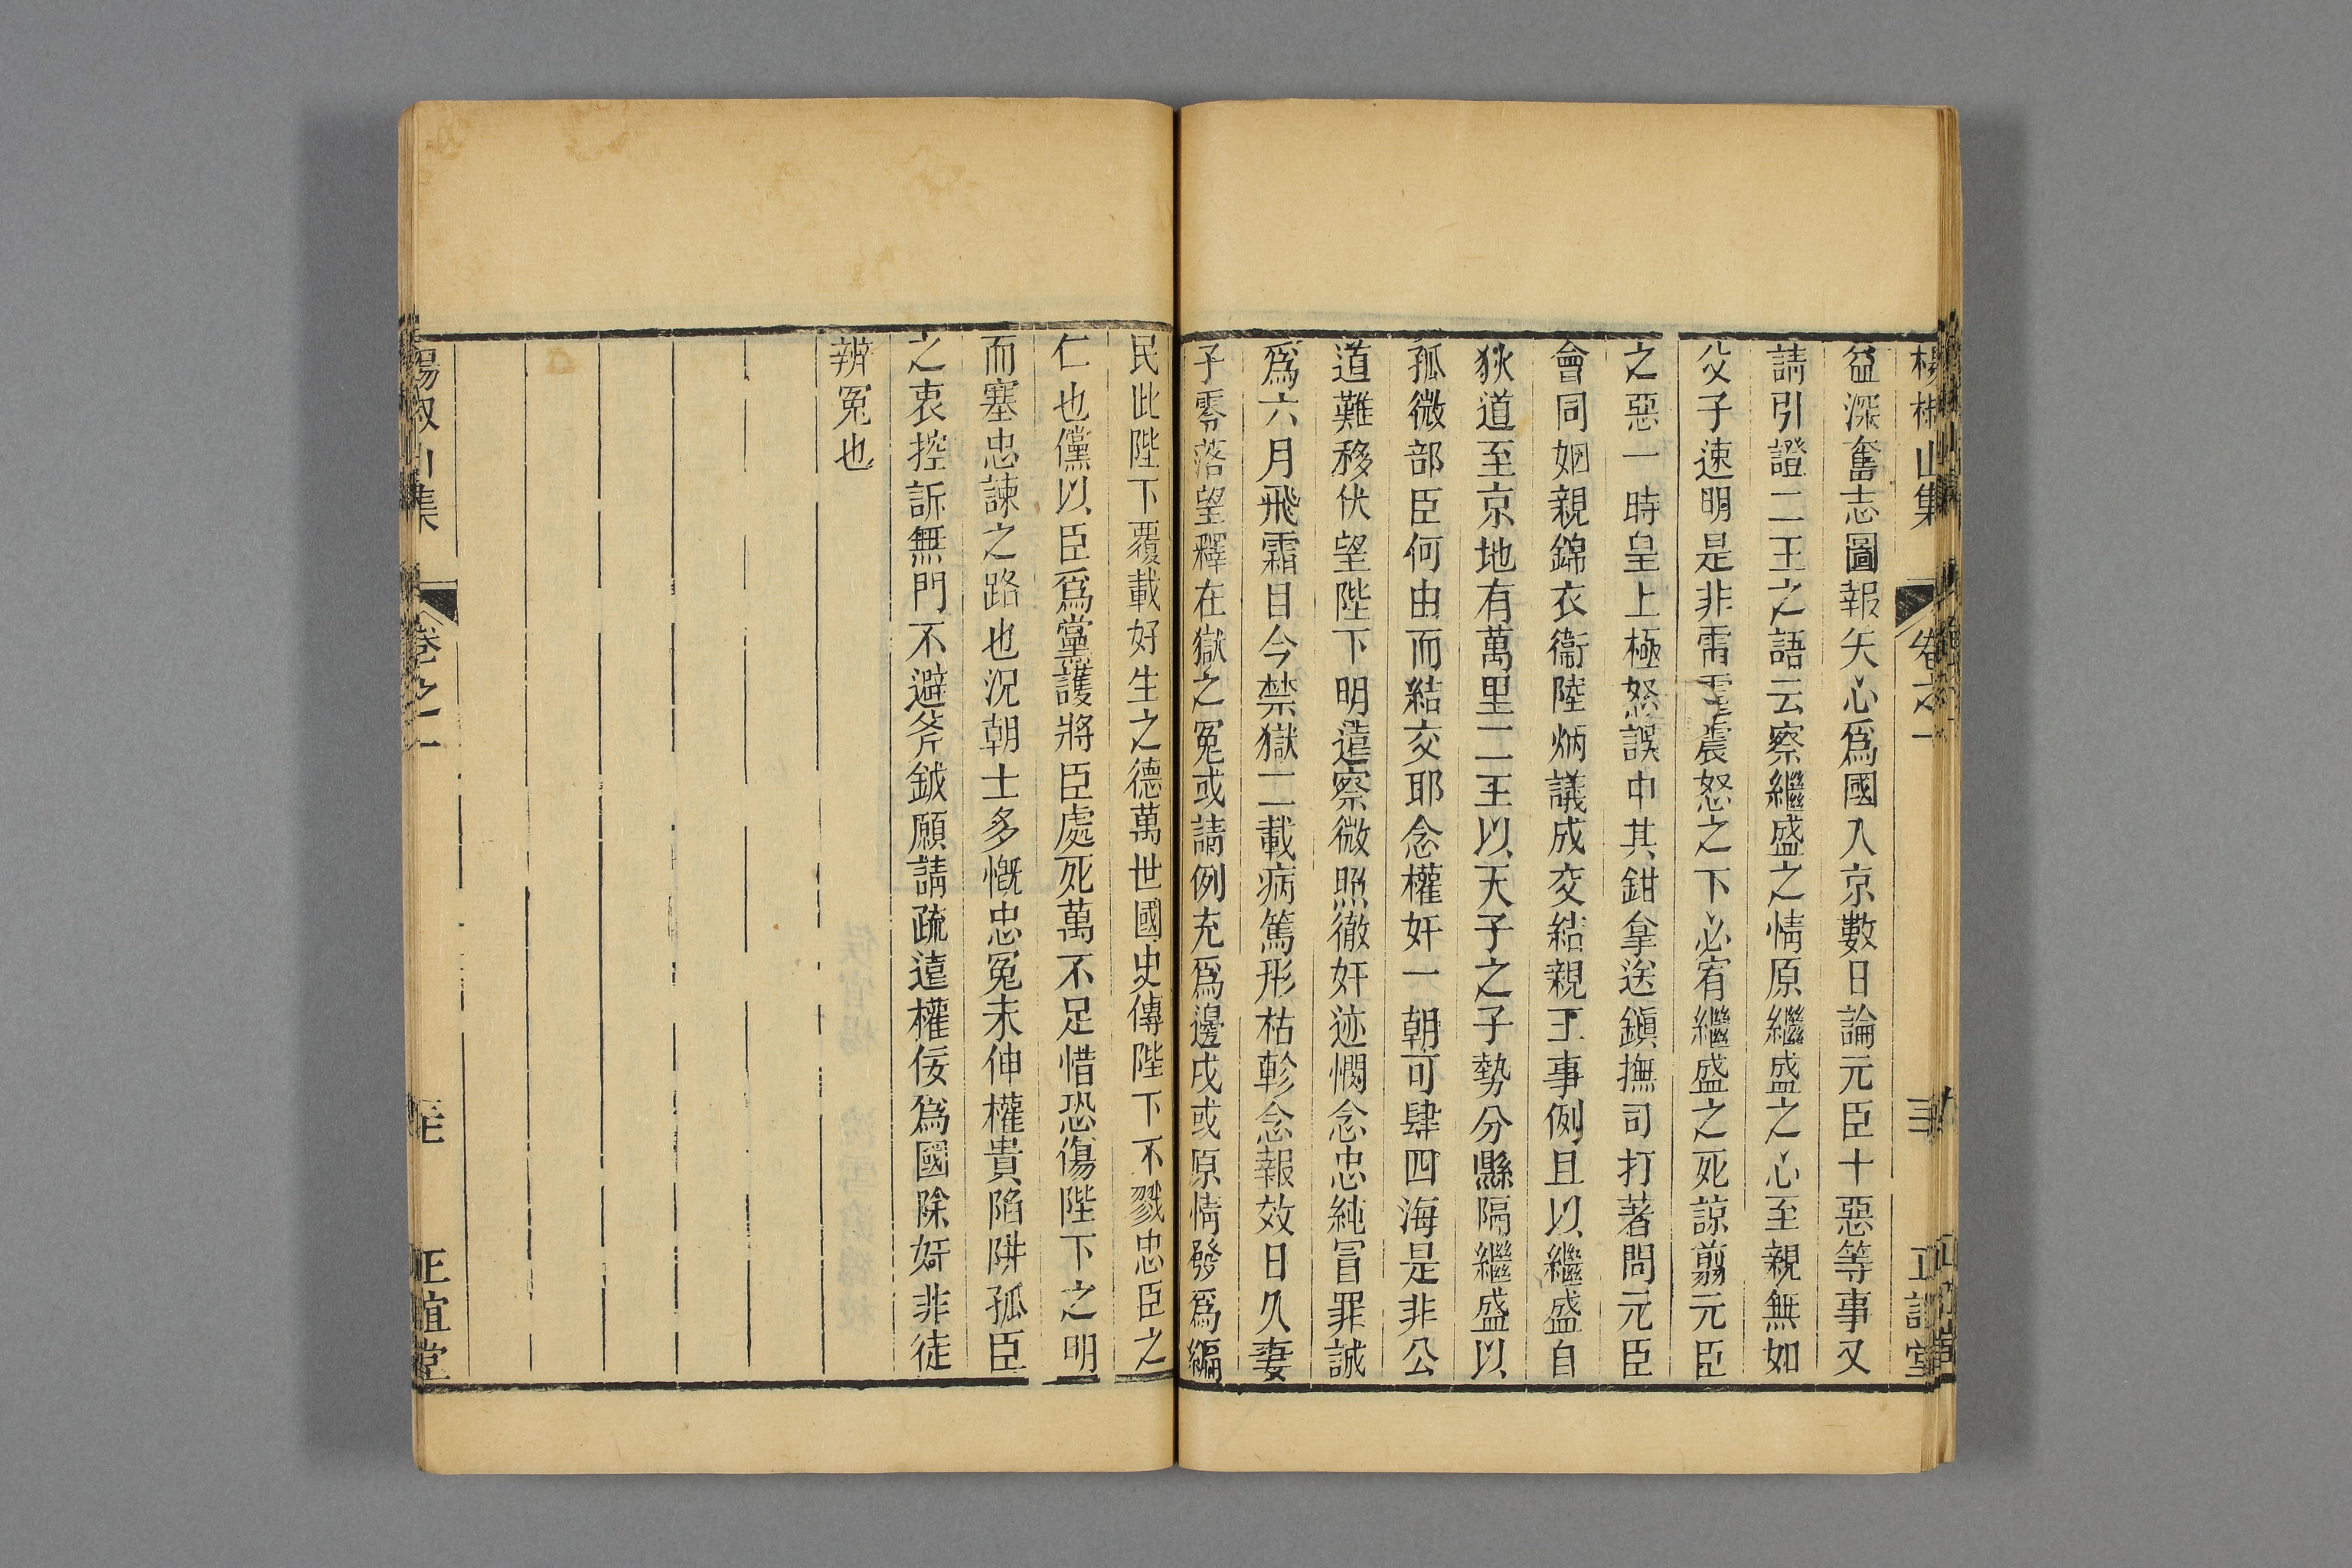 楊椒山集 卷之一 三 正誼堂
益深奮志圖報矢心爲國入京數日論元臣十惡等事又
請引證二王之語云察繼盛之情原繼盛之心至親無如
父子速明是非雷霆震怒之下必宥繼盛之死諒剪元臣
之惡一時皇上極怒誤中其鉗拿送鎭撫司打著問元臣
會同姻親錦衣衞陸炳議成交結親王事例且以繼盛自
狄道至京地有萬里二王以天子之子勢分縣隔繼盛以
孤微部臣何由而結交耶念權奸一朝可肆四海是非公
道難移伏望陛下明遠察微照徹奸迹憫念忠純冒罪誠
爲六月飛霜目今禁獄二載病篤形枯軫念報效日久妻
子零落望釋在獄之冤或請例充爲邊戍或原情發爲編
民此陛下覆載好生之德萬世國史傳陛下不戮忠臣之
仁也儻以臣爲黨護將臣處死萬不足惜恐傷陛下之明
而塞忠諫之路也況朝士多慨忠冤未伸權貴陷阱孤臣
之衷控訴無門不避斧鉞願請疏遠權佞爲國除奸非徒
辨冤也
楊椒山集 卷之一 正誼堂